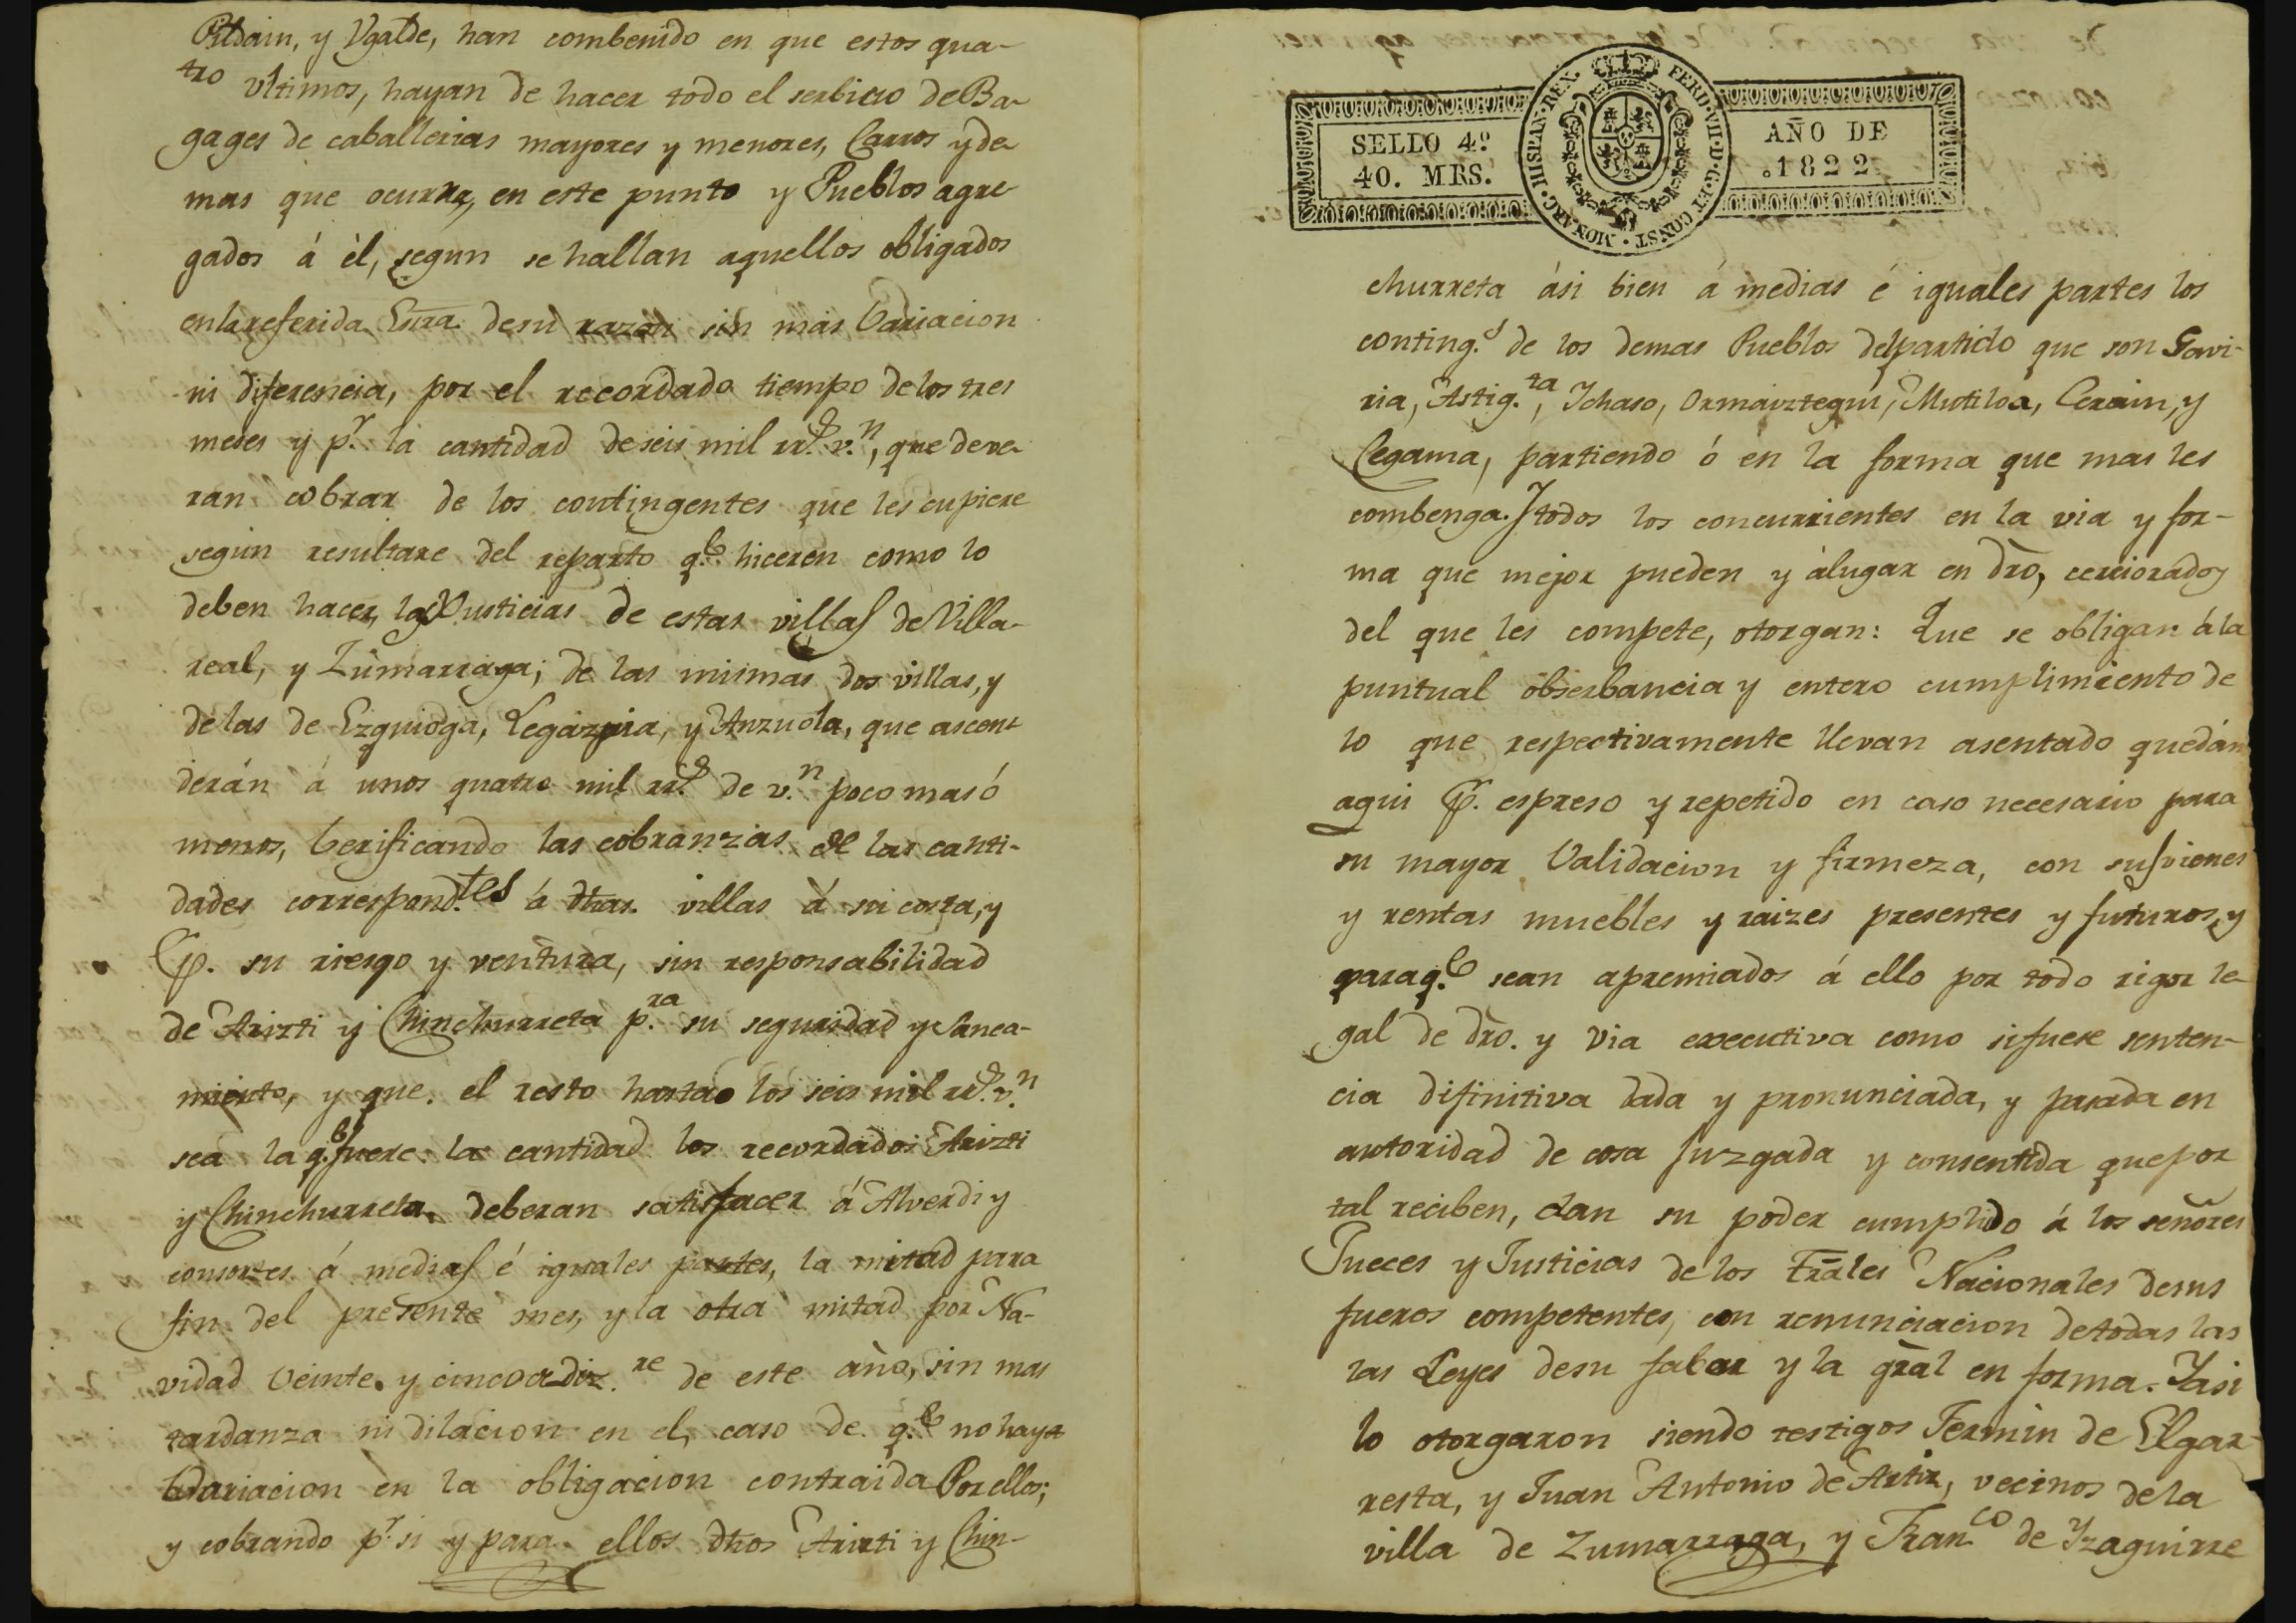 Pildain, y Ygalde, han combenido en que estos qua-
tro vltimos, hayan de hacer todo el serbicio de Ba-
gages de caballerias mayores y menores, Carros y de
mas que ocurra, en este punto y Pueblos agre
gados á él, segun se hallan aquellos obligados
en la referida Esra. de su razon sin mas bariacion
ni diferencia, por el recordado tiempo de los tres
meses y pr. la cantidad de seis mil rrs. vn., que deve-
ran cobrar de los contingentes que les cupiere
segun resultare del reparto qe. hiceren como lo
deben hacer, las Justicias de estas villas de Villa-
real, y Zumarraga; de las mismas dos villas, y
de las de Ezquioga, Legazpia, y Anzuola, que ascen
derán á unos quatro mil rrs. de vn. poco mas ó
menos, berificando las cobranzias de las canti-
dades correspondtes. á dhas. villas á su costa, y
p. su riesgo y ventura, sin responsabilidad
de Arizti y Chinchurreta pra. su seguridad y sanea-
miento, y que el resto hasta los seis mil rrs. vn.
sea la qe. fuere la cantidad los recordados Arizti
y Chinchurreta deberan satisfacer á Alverdi y
consortes á medias é iguales partes, la mitad para
fin del presente mes, y la otra mitad por Na-
vidad veinte y cinco de dizre. de este año, sin mas
tardanza ni dilacion en el caso de qe. no haya
bariacion en la obligacion contraida Por ellos;
y cobrando pr. si y para ellos dhos Arizti y Chin-
SELLO 4º.
40. MRS.
HISPAN. REX. FERD. VII. D. G. ET CONST. MONARC.
AÑO DE
1822.
churreta ási bien á medias é iguales partes los
contings. de los demas Pueblos del partido que son Gavi-
ria, Astigta., Ichaso, Ormaiztegui, Mutiloa, Cerain, y
Cegama, partiendo ó en la forma que mas les
combenga. I todos los concurrientes en la via y for-
ma que mejor pueden y á lugar en dro, cerciorados
del que les compete, otorgan: Que se obligan á la
puntual obserbancia y entero cumplimiento de
lo que respectivamente llevan asentado quedán
aqui p. espreso y repetido en caso necesario para
su mayor Validacion y firmeza, con sus vienes
y rentas muebles y raizes presentes y futuros, y
para qe. sean apremiados á ello por todo rigor le-
gal de dro. y via executiva como si fuese senten-
cia difinitiva dada y pronunciada, y pasada en
autoridad de cosa Juzgada y consentida que por
tal reciben, dan su poder cumplido á los señores
Jueces y Justicias de los Trales Nacionales de sus
fueros competentes, con renunciacion de todas las
las Leyes de su fabor y la gral en forma. Y asi
lo otorgaron siendo testigos Fermin de Elgar-
resta, y Juan Antonio de Artiz, vecinos de la
villa de Zumarraga, y Franco. de Yzaguirre